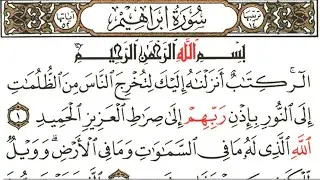 سُورَةُ إِبْرَاهِيمَ
بِسْمِ ٱللَّهِ ٱلرَّحْمَٰنِ ٱلرَّحِيمِ
الٓر ۚ كِتَٰبٌ أَنزَلْنَٰهُ إِلَيْكَ لِتُخْرِجَ ٱلنَّاسَ مِنَ ٱلظُّلُمَٰتِ
إِلَى ٱلنُّورِ بِإِذْنِ رَبِّهِمْ إِلَىٰ صِرَٰطِ ٱلْعَزِيزِ ٱلْحَمِيدِ ١
ٱللَّهِ ٱلَّذِى لَهُۥ مَا فِى ٱلسَّمَٰوَٰتِ وَمَا فِى ٱلْأَرْضِ ۗ وَوَيْلٌ